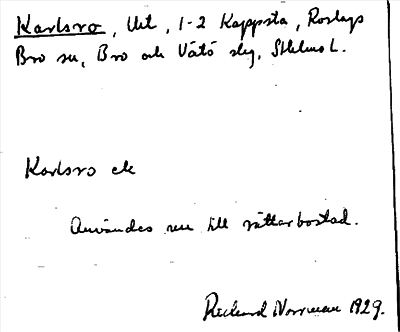 Karlsro, Urt, 1-2 Kappsta, Roslags
Bro sn, Bro och Vätö slg, Sthlms L.
Karlsro ek
Användes nu till rättarbostad.
Richard Norrman 1929.